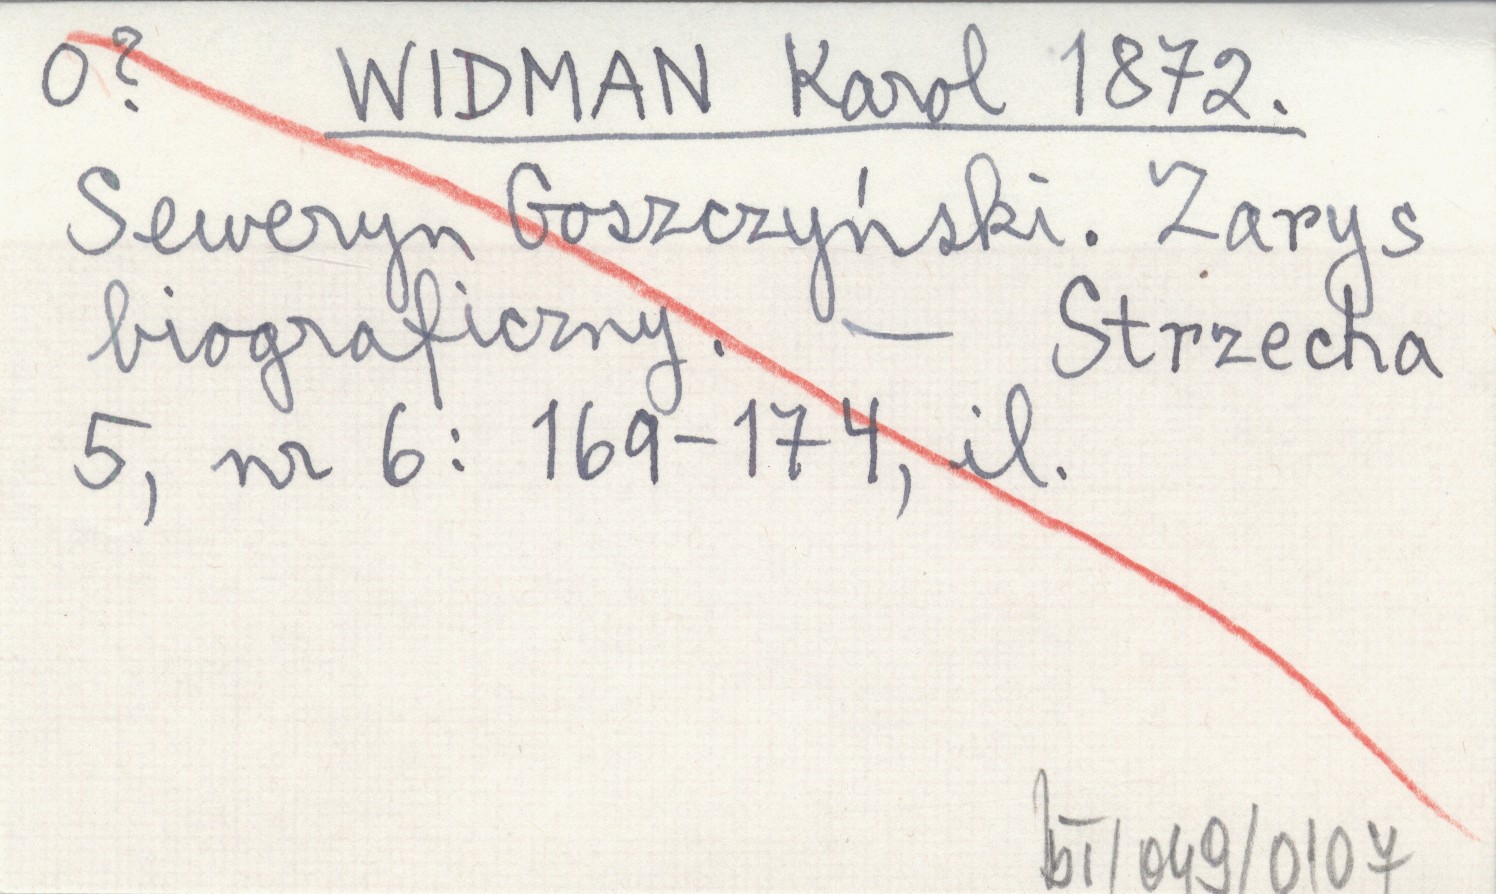 0? WIDMAN Karol 1872.
Seweryn Goszczyński. Zarys
biograficzny. — Strzecha
5, nr 6: 169-174, il.
bī/049/0107